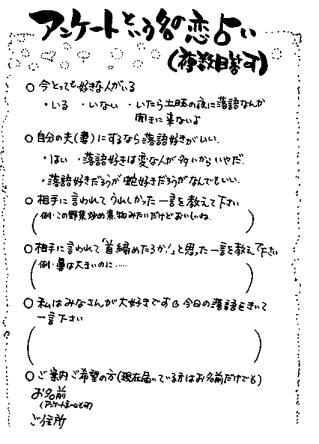 アンケートという名の恋占い
(複数回答可)
○今とっても好きな人がいる
・いる ・いない ・いたら土曜の夜に落語なんか
聞きに来ないよ
○自分の夫(妻)にするなら落語好きがいい。
・はい ・落語好きは変な人が多いからいやだ。
・落語好きだろうが蛇好きだろうがなんでもいい。
○相手に言われてうれしかった一言を教えて下さい
(例・この野菜炒め煮物みたいだけどおいしいね。
)
○相手に言われて「首絞めたろか!」と思った一言を教えて下さい
(例・鼻は大きいのに・・・・・
)
○私はみなさんが大好きです 今日の落語をきいて
一言下さい
( )
○ご案内ご希望の方(現在届いている方はお名前だけでも)
お名前
(アンケートネームも可)
ご住所